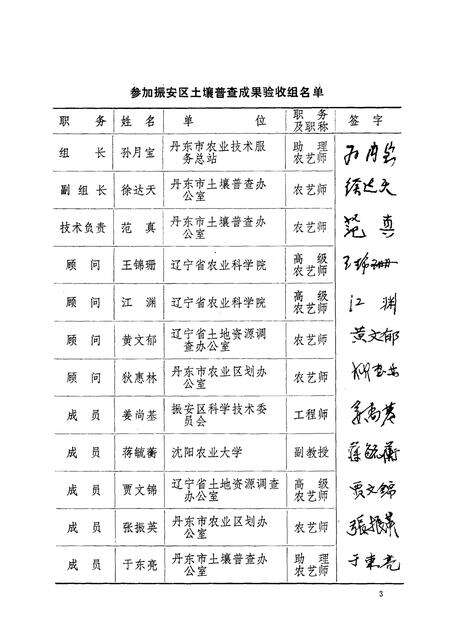 参加振安区土壤普查成果验收组名单
职务 姓名 单位 职务及职称 签字
组长 孙月宝 丹东市农业技术服务总站 助理农艺师 孙月宝
副组长 徐达天 丹东市土壤普查办公室 农艺师 徐达天
技术负责 范真 丹东市土壤普查办公室 农艺师 范真
顾问 王锦珊 辽宁省农业科学院 高级农艺师 王锦珊
顾问 江渊 辽宁省农业科学院 高级农艺师 江渊
顾问 黄文郁 辽宁省土地资源调查办公室 农艺师 黄文郁
顾问 狄惠林 丹东市农业区划办公室 农艺师
成员 姜尚基 振安区科学技术委员会 工程师 姜尚基
成员 蒋毓衡 沈阳农业大学 副教授 蒋毓衡
成员 贾文锦 辽宁省土地资源调查办公室 高级农艺师 贾文锦
成员 张振英 丹东市农业区划办公室 农艺师 張振英
成员 于东亮 丹东市土壤普查办公室 助理农艺师 于东亮
3